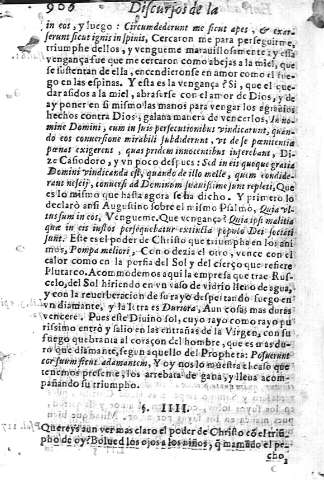 906 Discursos de la
in eos, y luego: Circumdederunt me sicut apes, & exar-
serunt sicut ignis in spinis, Cercaron me para perseguirme,
triumphe dellos, y vengueme marauillosamente: y esta
vengança fue que me cercaron como abejas a la miel, que
se sustentan de ella, encendieronse en amor como el fue-
go en las espinas. Y esta es la vengança? Si, el que-
darasidos a la miel, abrasarse con el amor de Dios, y de
ay poner en si mismo las manos para vengar los agrauios
hechos contra Dios, galana manera de vencerlos, In no-
mine Domini, cum in suis persecutionibus vindicarunt, quan-
do eos conuersione mirabili subdiderunt, vt de se pœnitentiæ
pœnas exigerent, quas pridem innocentibus inferebant, Di-
ze Casiodoro, y vn poco despues: Sed in eis quoque gratia
Domini vindicanda est, quando de illo melle, quem condide-
rant nescij, conuersi ad Dominum suauissime sunt repleti, Que
es lo mismo que hasta agora se ha dicho. Y primero lo
declarò ansi Augustino sobre el mismo Psalmo, Quia vl-
tus sum in eos, Vengueme. Que vengança? Quia ipsa malitia
que in eis iustos persequebatur extincta populo Dei sociati
sunt. Este es el poder de Christo que triumpha en los ani-
mos, Pompa meliori, Con o dezia el otro, vence con el
calor como en la porfia del Sol y del cierço que refiere
Plutarco. Acomodemos aqui la empresa que trae Rus-
celo, del Sol hiriendo en vn vaso de vidrio lleno de agua,
y con la reuerberacion de su rayo despertando fuego en
vn diamante, y la letra es Duriora, Aun cosas mas duras
vencere. Pues este Diuino sol, cuyo rayo como rayo pu-
rissimo entrò y salio en las entrañas de la Virgen, con su
fuego quebranta al coraçon del hombre, que es mas du-
ro que diamante, segun aquello del Propheta: Posuerunt
cor suum sicut adamantem, Y oy nos lo muestra el caso que
tenemos presente, los arrebata de gana, y lleua acom-
pañando su triumpho.
§. IIII.
Quereys aun ver mas claro el poder de Christo cõ el triũ-
pho de oy? Bolued los ojos a los niños, q̃ mamãdo el pe-
cho